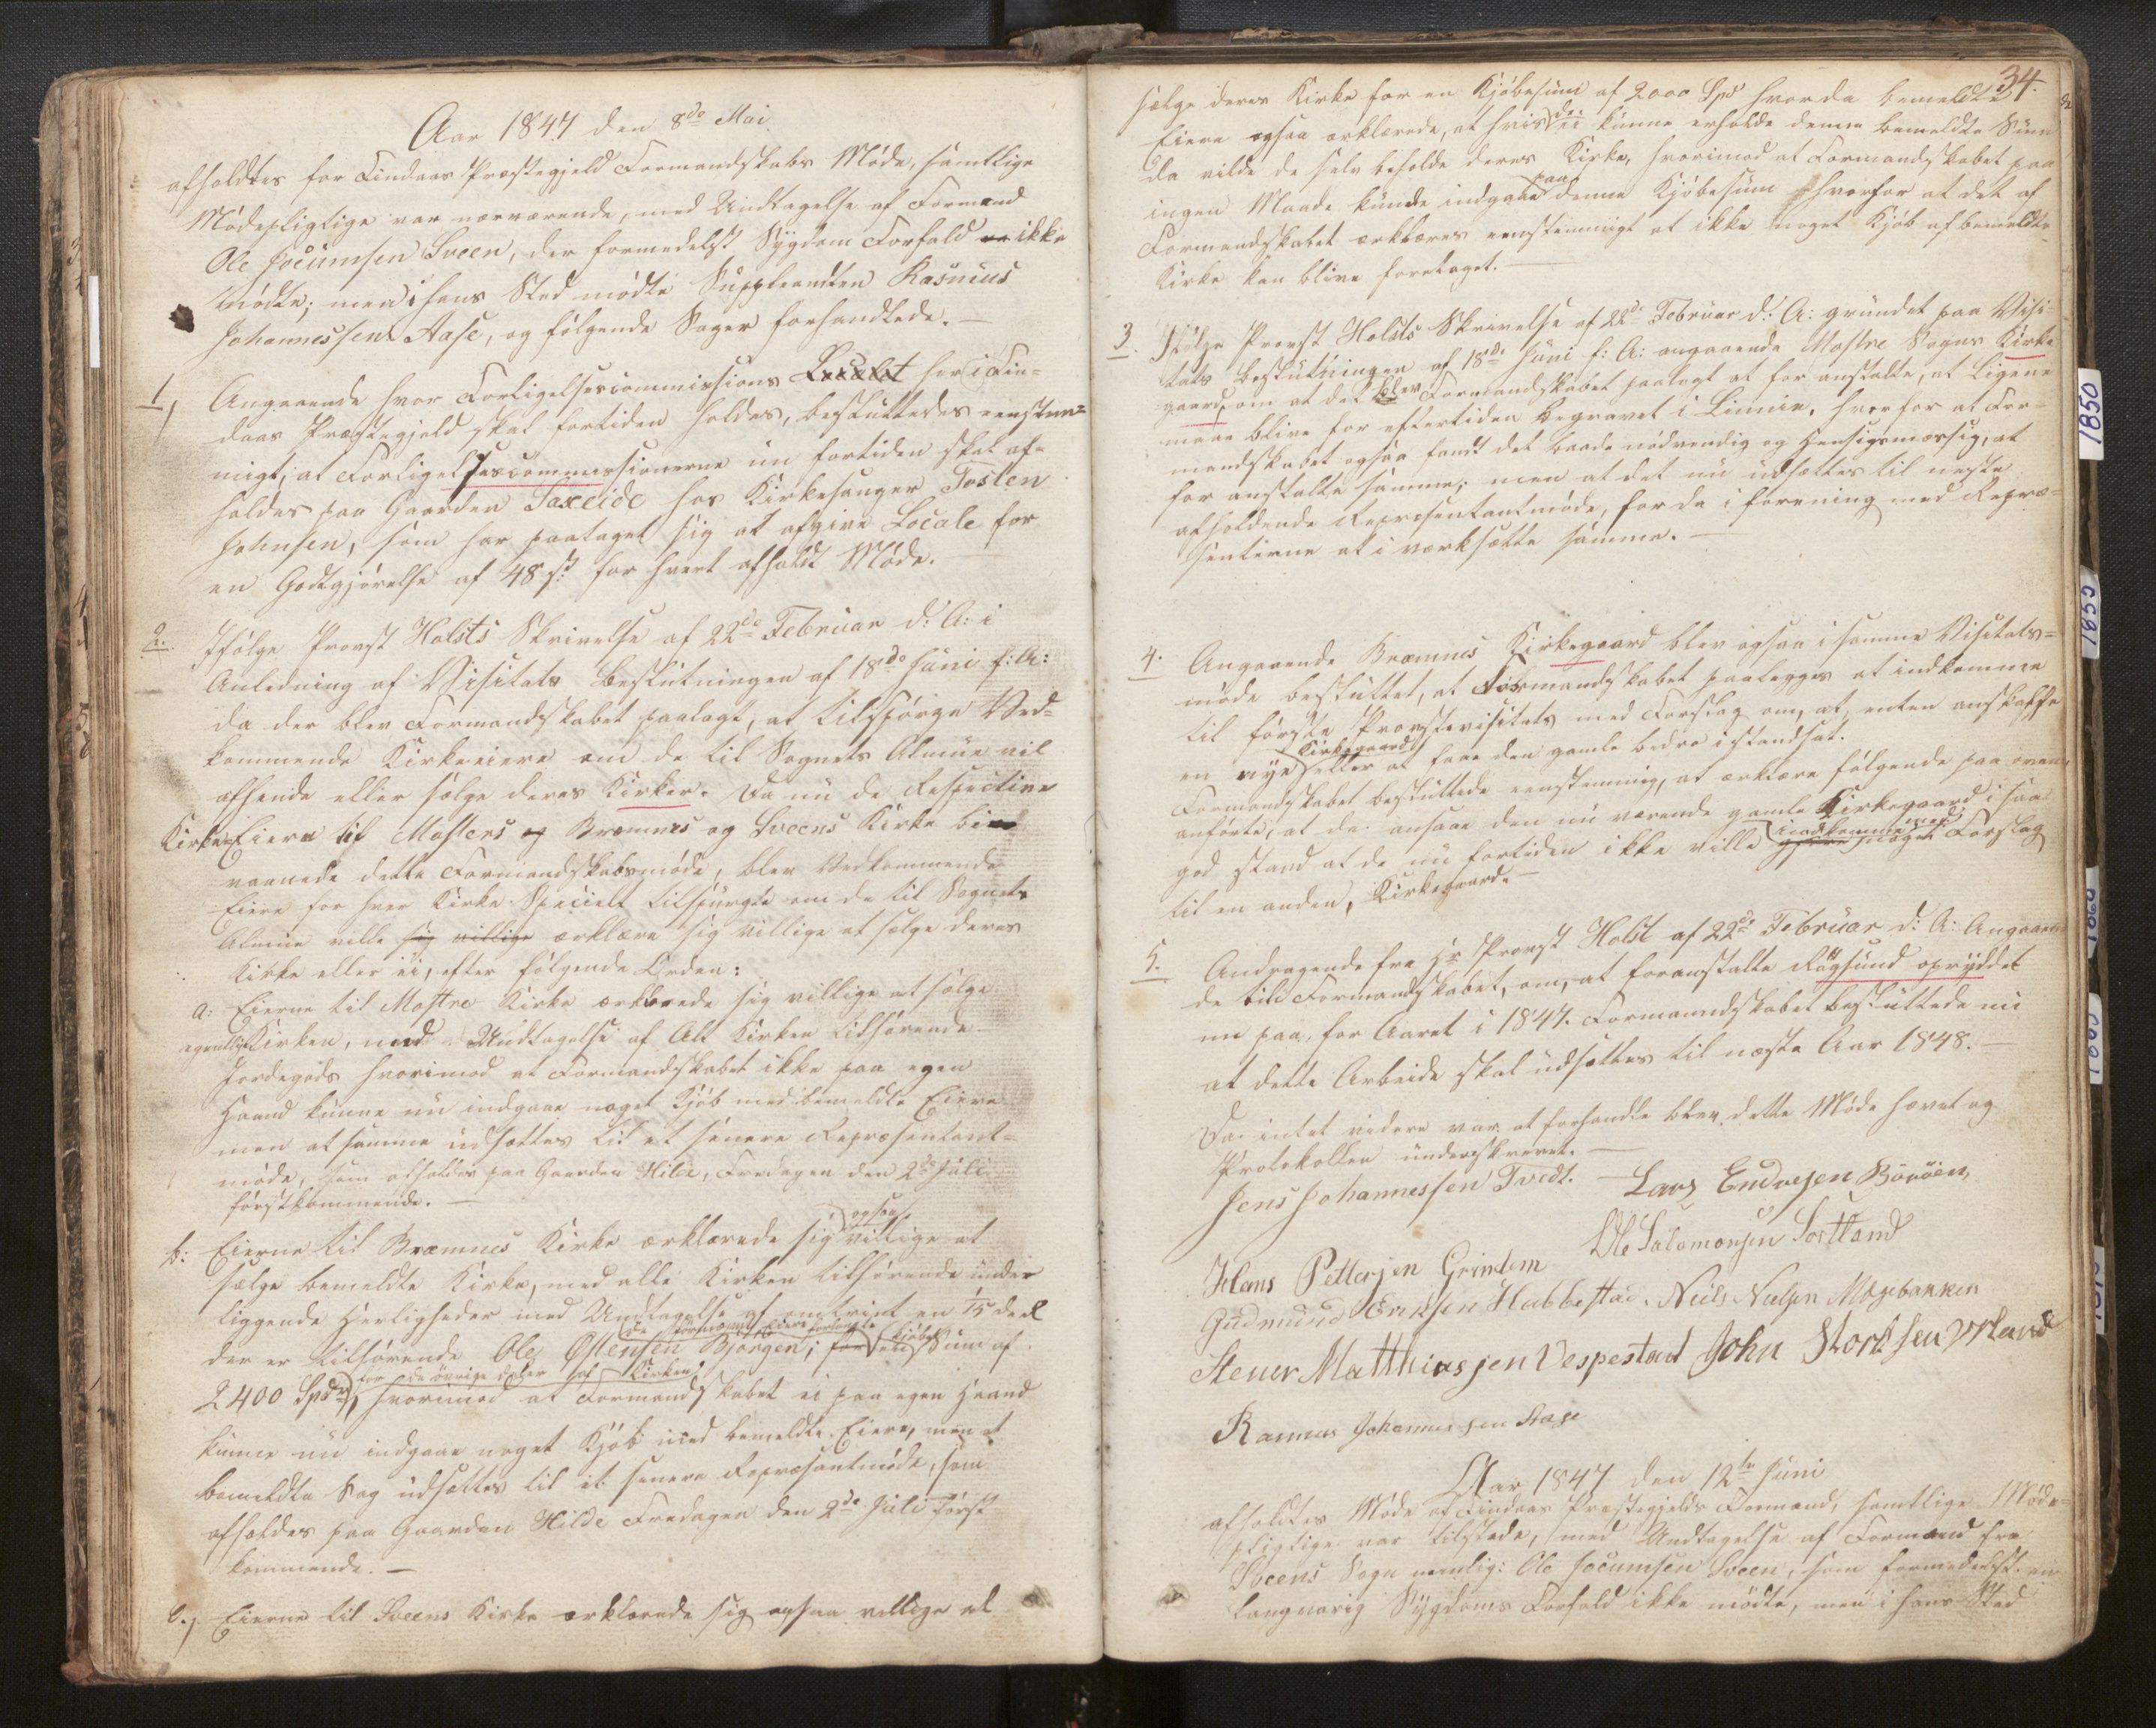 Aar 1847 den 8de Mai
afholdtes for Findaas Præstegjeld Formandskabs Møde, samtlige
Mødepligtige var nærværende, med Undtagelse af Formand
Ole Jocumsen Sveen, der formedelst Sygdom Forfald ikke
mødte; men i hans Sted mødte Suppleandten Rasmus
Johannessen Aase, og følgende Sager forhandlede.
1, Angaaende hvor Forligelsescommissions Localet her i Fin-
daas Præstegjeld skal fortiden holdes, besluttedes eenstem-
migt, at Forligelsescommissionerne nu fortiden skal af-
holdes paa Gaarden Saxeide hos Kirkesanger Tosten
Johnsen, som har paataget sig at afgive Locale for
en Godtgjørelse af 48 s. for hvert afholdt Møde.
2. Ifølge Provst Holsts Skrivelse af 22de Februar d: A: i
Anledning af Visitats Beslutningen af 18de Juni f: A:
da der blev Formandskabet paalagt, at tilspørge Ved-
kommende Kirkeeiere om de til Sognets Almue vil
afhende eller sælge deres Kirker. Da nu de Respective
Kirke Eiere til Mosters og Bræmnes og Sveens Kirke bi
vaanede dette Formandskabsmøde, blev Vedkommende
Eiere for hver Kirke Specielt tilspurgte om de til Sognets
Almue ville sig villige erklære sig villige at sælge deres
Kirke eller ei, efter følgende Orden:
a: Eierne til Mostre Kirke erklærede sig villige at sælge
egentlige Kirken, med Undtagelse af Alt Kirken tilhørende
Jordegods hvorimod at Formandskabet ikke paa egen
Haand kunne nu indgaae noget Kjøb med bemeldte Eiere
men at samme udsættes til et senere Repræsentant-
møde, som afholdes paa Gaarden Hilde, Fredagen den 2de Juli
førstkommende.
b: Eierne til Bræmnes Kirke erklærede sig ogsaa villige at
sælge bemeldte Kirke, med alle Kirken tilhørende under
liggende Herligheder med Undtagelse af omtrint en 1/15 deel
der er tilhørende Ole Østensen Bjørgen; for en Kjøbe Sum af
2400 Spd for de øvrige deler af Kirken, hvorimod at Formandskabet ei paa egen Haand
kunne nu indgaae noget Kjøb med bemeldte Eiere, men at
bemeldte Sag udsættes til et senere Repræsentmøde, som
afholdes paa Gaarden Hilde Fredagen den 2de Juli Først
kommende.
c., Eierne til Sveens Kirke erklærede sig ogsaa villige at
34.
sælge deres Kirke for en Kjøbesum af 2000 Spd hvorda bemeldte
Eiere ogsaa erklærede, at hvis de ei kunne erholde denne bemeldte Sum
da vilde de selv beholde deres Kirke, hvorimod at Formandskabet paa
ingen Maade kunde indgaae paa denne Kjøbesum hvorfor at det af
Formandskabet erklæres eenstemmigt at ikke noget Kjøb af bemeldte
Kirke kan blive foretaget.
3. Ifølge Provst Holsts Skrivelse af 22de Februar d: A: grundet paa Visi-
tats Beslutningen af 18de Juni f: A: angaaende Mostre Sogns Kirke
gaard, om at det blev Formandskabet paalagt at for anstalte, at Ligene
maae blive for eftertiden begravet i Linnie, hvorfor at For-
mandskabet ogsaa fandt det baade nødvendig og hensigsmæssig, at
for anstalte samme; men at det nu udsættes til neste
afholdende Repræsentantmøde, for da i forening med Repræ-
sentterne at i værksætte samme.
4. Angaaende Bræmnes Kirkegaard blev ogsaa i samme Visitats-
møde besluttet, at Formandskabet paalegges at indkomme
til første Provstevisitats med Forslag om, at enten anskaffe
en nye Kirkegaard eller at faae den gamle bedre istandsat.
Formandskabet besluttede eenstemmig, at erklære følgende paa oven
anførte, at de ansaae den nu værende gamle Kirkegaard i saa
god stand at de nu fortiden ikke ville indkomme med noget Forslag
til en anden Kirkegaard.
5. Andragende fra Hr Provst Holst af 22de Februar d: A: Angaaen
de til Formandskabet, om, at foranstalte Røgsund opryddet
nu paa, for Aaret i 1847. Formandskabet besluttede nu
at dette Arbeide skal udsættes til næste Aar 1848.
Da intet videre var at forhandle blev dette Møde hævet og
Protokollen underskrevet.
Jens Johannessen Tvedt. Lars Endresen Børøen,
Hans Pettersen Grindem Ole Salomonsen Sortland
Gudmund Eriksen Habbestad. Neils Nielsen Mogebakken
Steuer Matthiassen Vespestad John Størksen Urland
Rasmus Johannessen Aase
Aar 1847 den 12te Juni
afholdtes Møde af Findaas Præstegjelds Formand, samtlige Møde-
pligtige var tilstede, med Undtagelse af Formand fra
Sveens Sogn nemlig: Ole Jocumsen Sveen, som formedelst en
langvarig Sygdoms Forfald ikke mødte, men i hans Sted
1850
1855
1860
1865